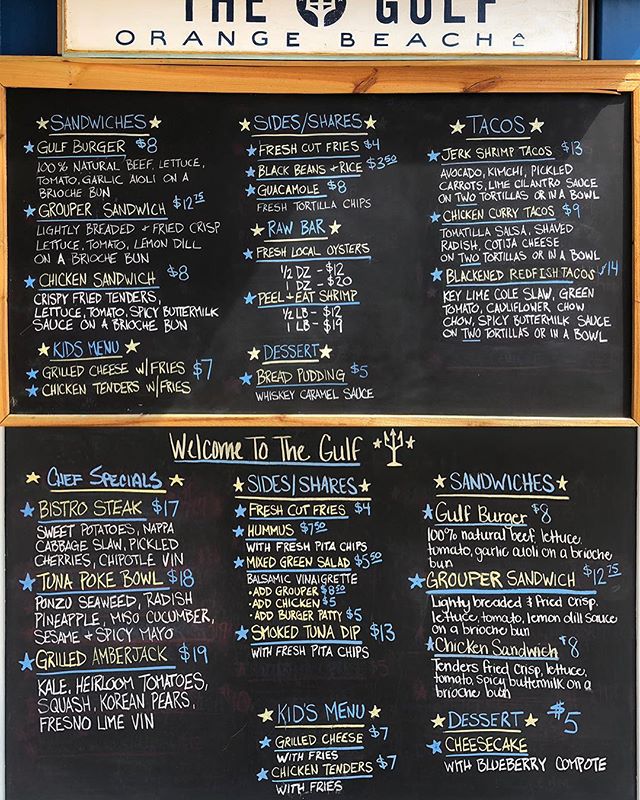 THE GULF
ORANGE BEACH
SANDWICHES
GULF BURGER $8
100% NATURAL BEEF, LETTUCE,
TOMATO, GARLIC AIOLI ON A
BRIOCHE BUN
GROUPER SANDWICH $12.75
LIGHTLY BREADED + FRIED CRISP
LETTUCE, TOMATO, LEMON DILL
ON A BRIOCHE BUN
CHICKEN SANDWICH $8
CRISPY FRIED TENDERS,
LETTUCE, TOMATO, SPICY BUTTERMILK
SAUCE ON A BRIOCHE BUN
KIDS MENU
GRILLED CHEESE W/FRIES $7
CHICKEN TENDERS W/FRIES
SIDES/SHARES
FRESH CUT FRIES $4
BLACK BEANS + RICE $3.50
GUACAMOLE $8
FRESH TORTILLA CHIPS
RAW BAR
FRESH LOCAL OYSTERS
1/2 DZ - $12
1 DZ - $20
PEEL + EAT SHRIMP
1/2 LB - $12
1 LB - $19
DESSERT
BREAD PUDDING $5
WHISKEY CARAMEL SAUCE
TACOS
JERK SHRIMP TACOS $13
AVOCADO, KIMCHI, PICKLED
CARROTS, LIME CILANTRO SAUCE
ON TWO TORTILLAS OR IN A BOWL
CHICKEN CURRY TACOS $9
TOMATILLA SALSA, SHAVED
RADISH, COTIJA CHEESE
ON TWO TORTILLAS OR IN A BOWL
BLACKENED REDFISH TACOS $14
KEY LIME COLE SLAW, GREEN
TOMATO, CAULIFLOWER CHOW
CHOW, SPICY BUTTERMILK SAUCE
ON TWO TORTILLAS OR IN A BOWL
Welcome To The Gulf
CHEF SPECIALS
BISTRO STEAK $17
SWEET POTATOES, NAPPA
CABBAGE SLAW, PICKLED
CHERRIES, CHIPOTLE VIN
TUNA POKE BOWL $18
PONZU SEAWEED, RADISH
PINEAPPLE, MISO CUCUMBER,
SESAME + SPICY MAYO
GRILLED AMBERJACK $19
KALE, HEIRLOOM TOMATOES,
SQUASH, KOREAN PEARS,
FRESNO LIME VIN
SIDES/SHARES
FRESH CUT FRIES $4
HUMMUS $7.50
WITH FRESH PITA CHIPS
MIXED GREEN SALAD $5.50
BALSAMIC VINAIGRETTE
• ADD GROUPER $8.50
• ADD CHICKEN $5
• ADD BURGER PATTY $5
SMOKED TUNA DIP $13
WITH FRESH PITA CHIPS
KID'S MENU
GRILLED CHEESE $7
WITH FRIES
CHICKEN TENDERS $7
WITH FRIES
SANDWICHES
Gulf Burger $8
100% natural beef, lettuce,
tomato, garlic aioli on a brioche
bun
GROUPER SANDWICH $12.75
Lightly breaded & fried crisp.
lettuce, tomato, lemon dill sauce
on a brioche bun
Chicken Sandwich $8
Tenders fried crisp, lettuce,
tomato, spicy buttermilk on a
brioche bun
DESSERT $5
CHEESECAKE
WITH BLUEBERRY COMPOTE